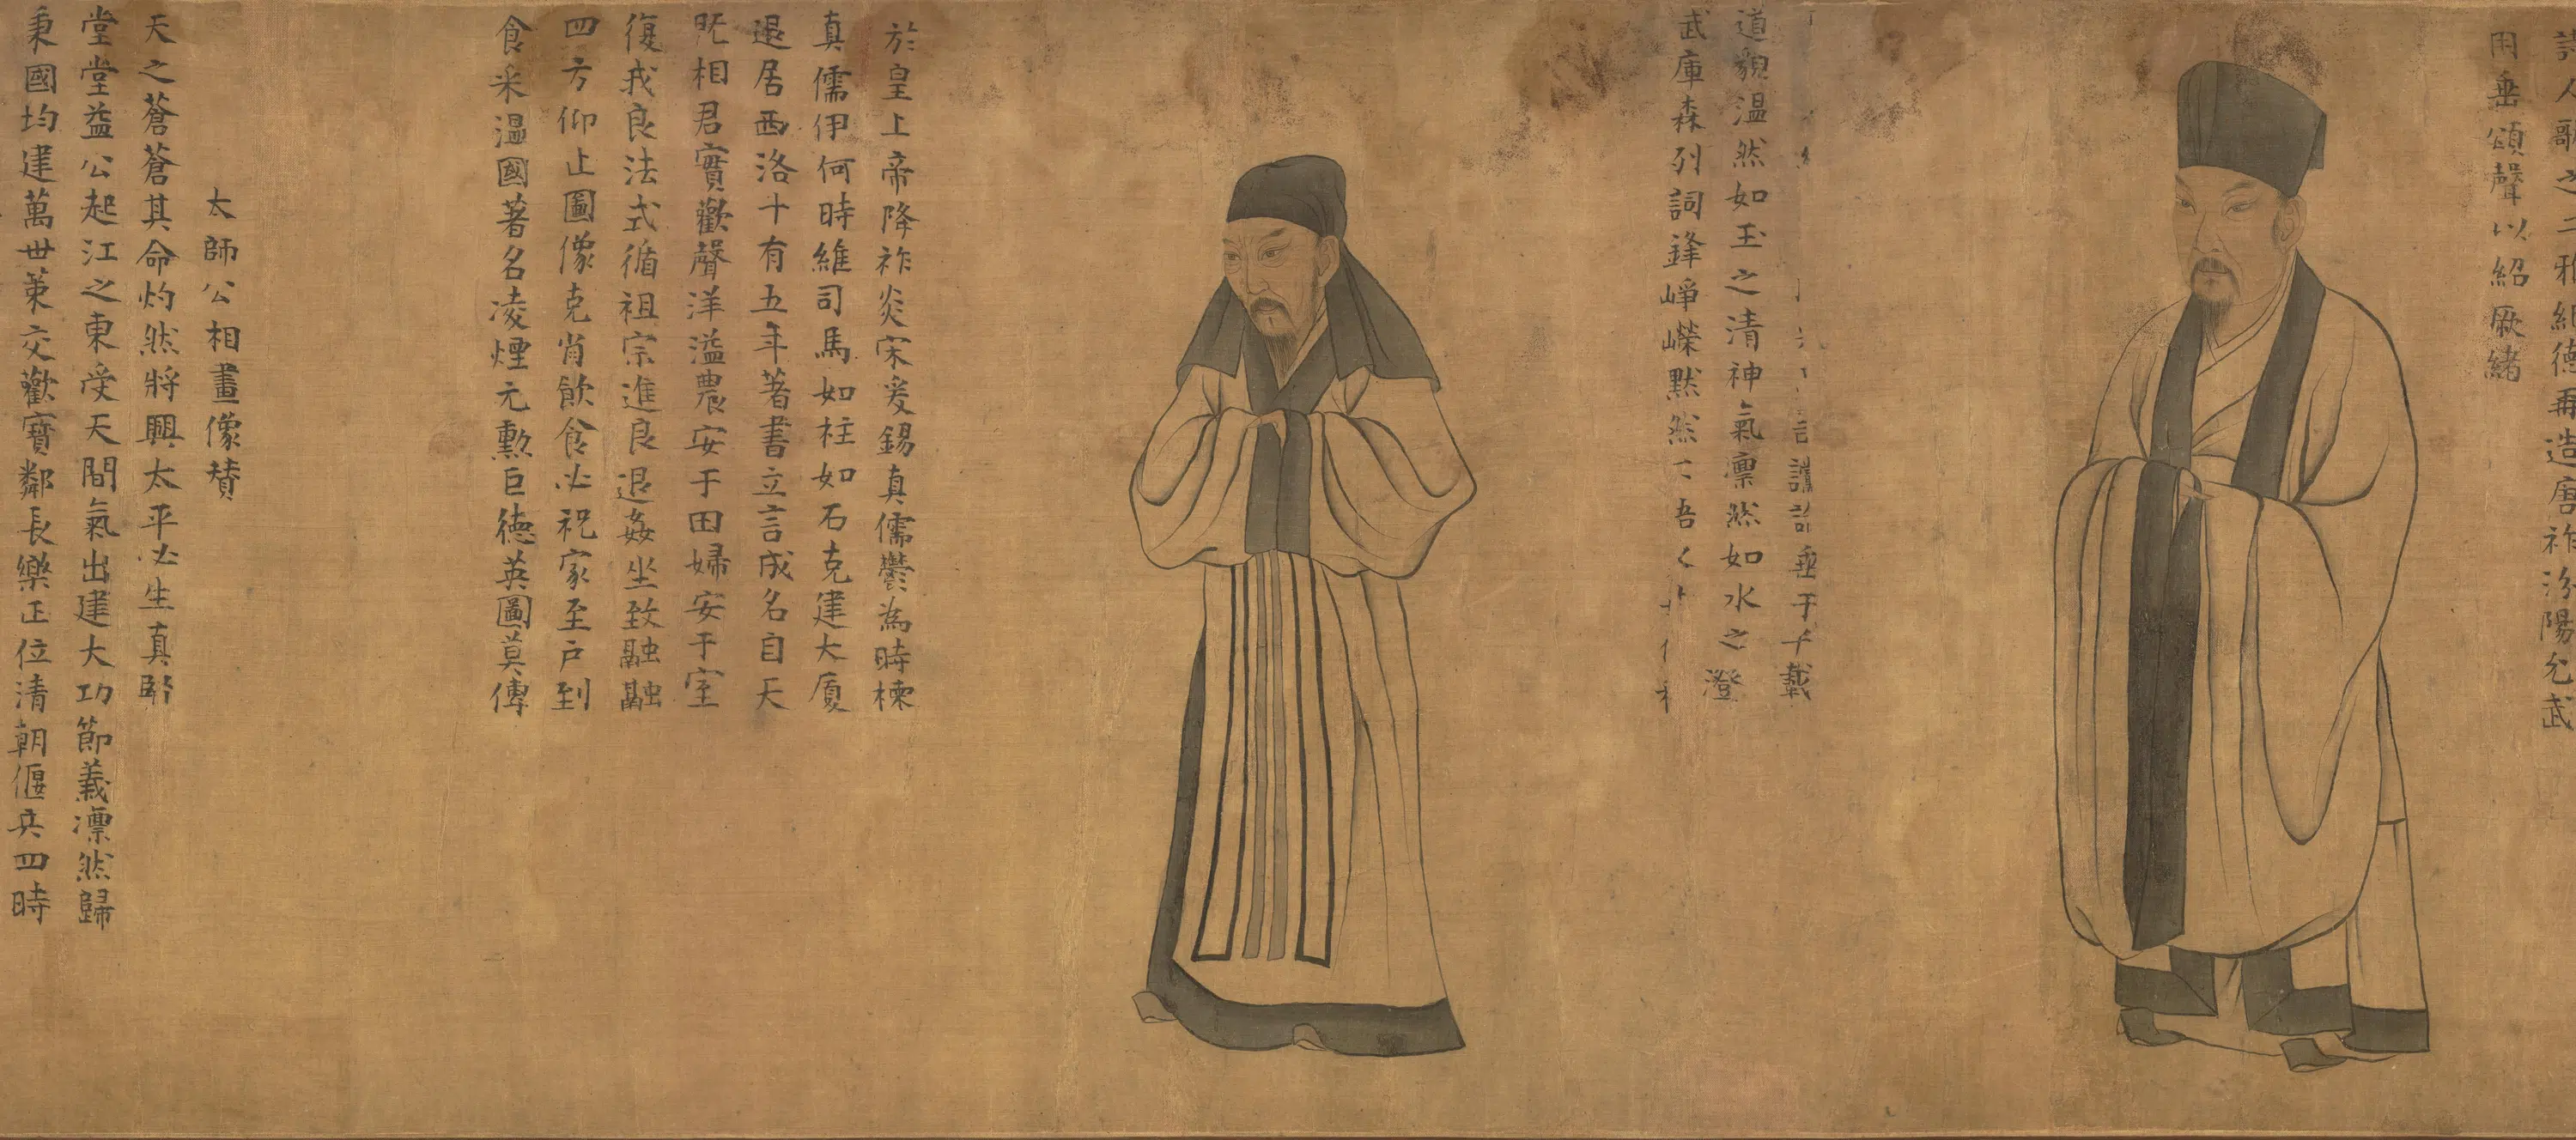 詩人歌之二雅紀德再造唐祚汾陽允武
用垂頌聲以紹厥緒
言謨訓垂于千載
道貌温然如玉之清神氣凛然如水之澄
武庫森列詞鋒崢嶸默然吾
於皇上帝降祚炎宋爰錫真儒鬱為時棟
真儒伊何時維司馬如柱如石克建大厦
退居西洛十有五年著書立言成名自天
既相君實歡聲洋溢農安于田婦安于室
復我良法式循祖宗進良退姦坐致融融
四方仰止圖像克肖飲食必祝家至户到
食采温國著名凌煙元勳巨德英圖莫傳
太師公相畫像賛
天之蒼蒼其命灼然將興太平必生真賢
堂堂益公起江之東受天間氣出建大功節義凛然歸
秉國均建萬世策交歡寳鄰長樂正位清朝偃兵四時